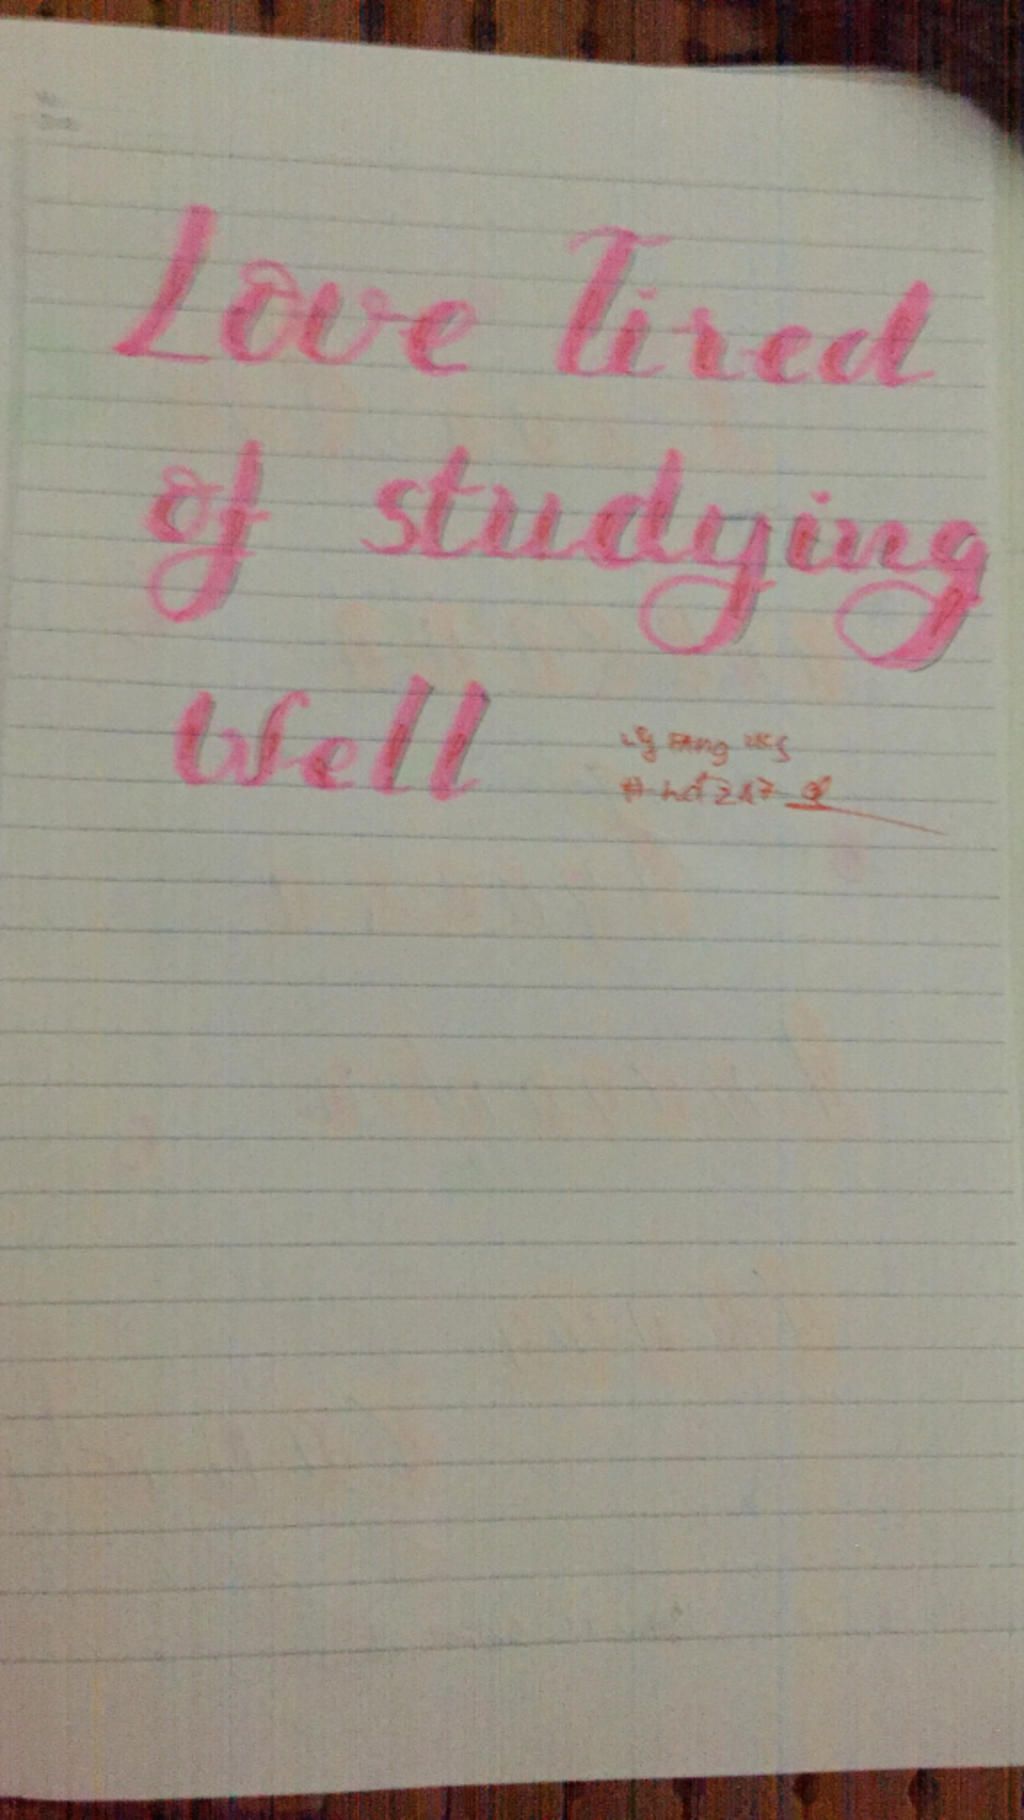 Love Tired
of studying
Well